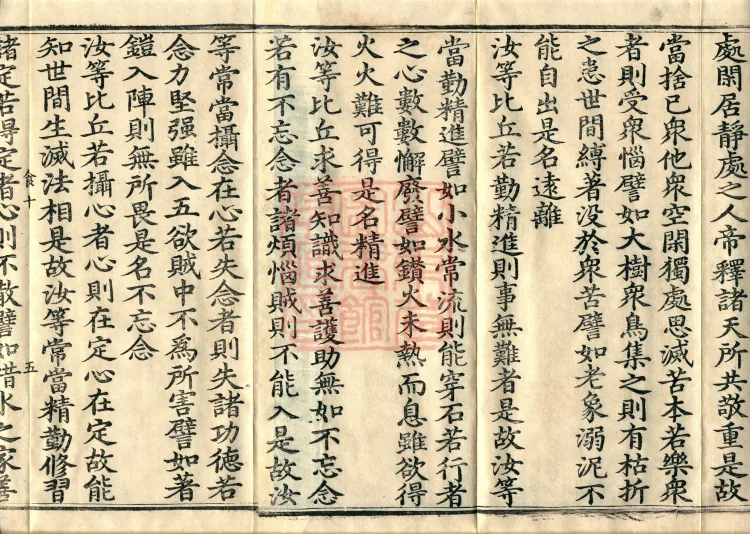 處閑居靜處之人帝釋諸天所共敬重是故
當捨已衆他衆空閑獨處思滅苦本若樂衆
者則受衆惱譬如大樹衆鳥集之則有枯折
之患世間縛著没於衆苦譬如老象溺泥不
能自出是名遠離
汝等比丘若勤精進則事無難者是故汝等
當勤精進譬如小水常流則能穿石若行者
之心數數懈廢譬如鑽火未熱而息雖欲得
火火難可得是名精進
汝等比丘求善知識求善護助無如不忘念
若有不忘念者諸煩惱賊則不能入是故汝
等常當攝念在心若失念者則失諸功德若
念力堅强雖入五欲賊中不爲所害譬如著
鎧入陣則無所畏是名不忘念
汝等比丘若攝心者心則在定心在定故能
知世間生滅法相是故汝等常當精勤修習
食十
五
諸定若得定者心則不散譬如惜水之家善